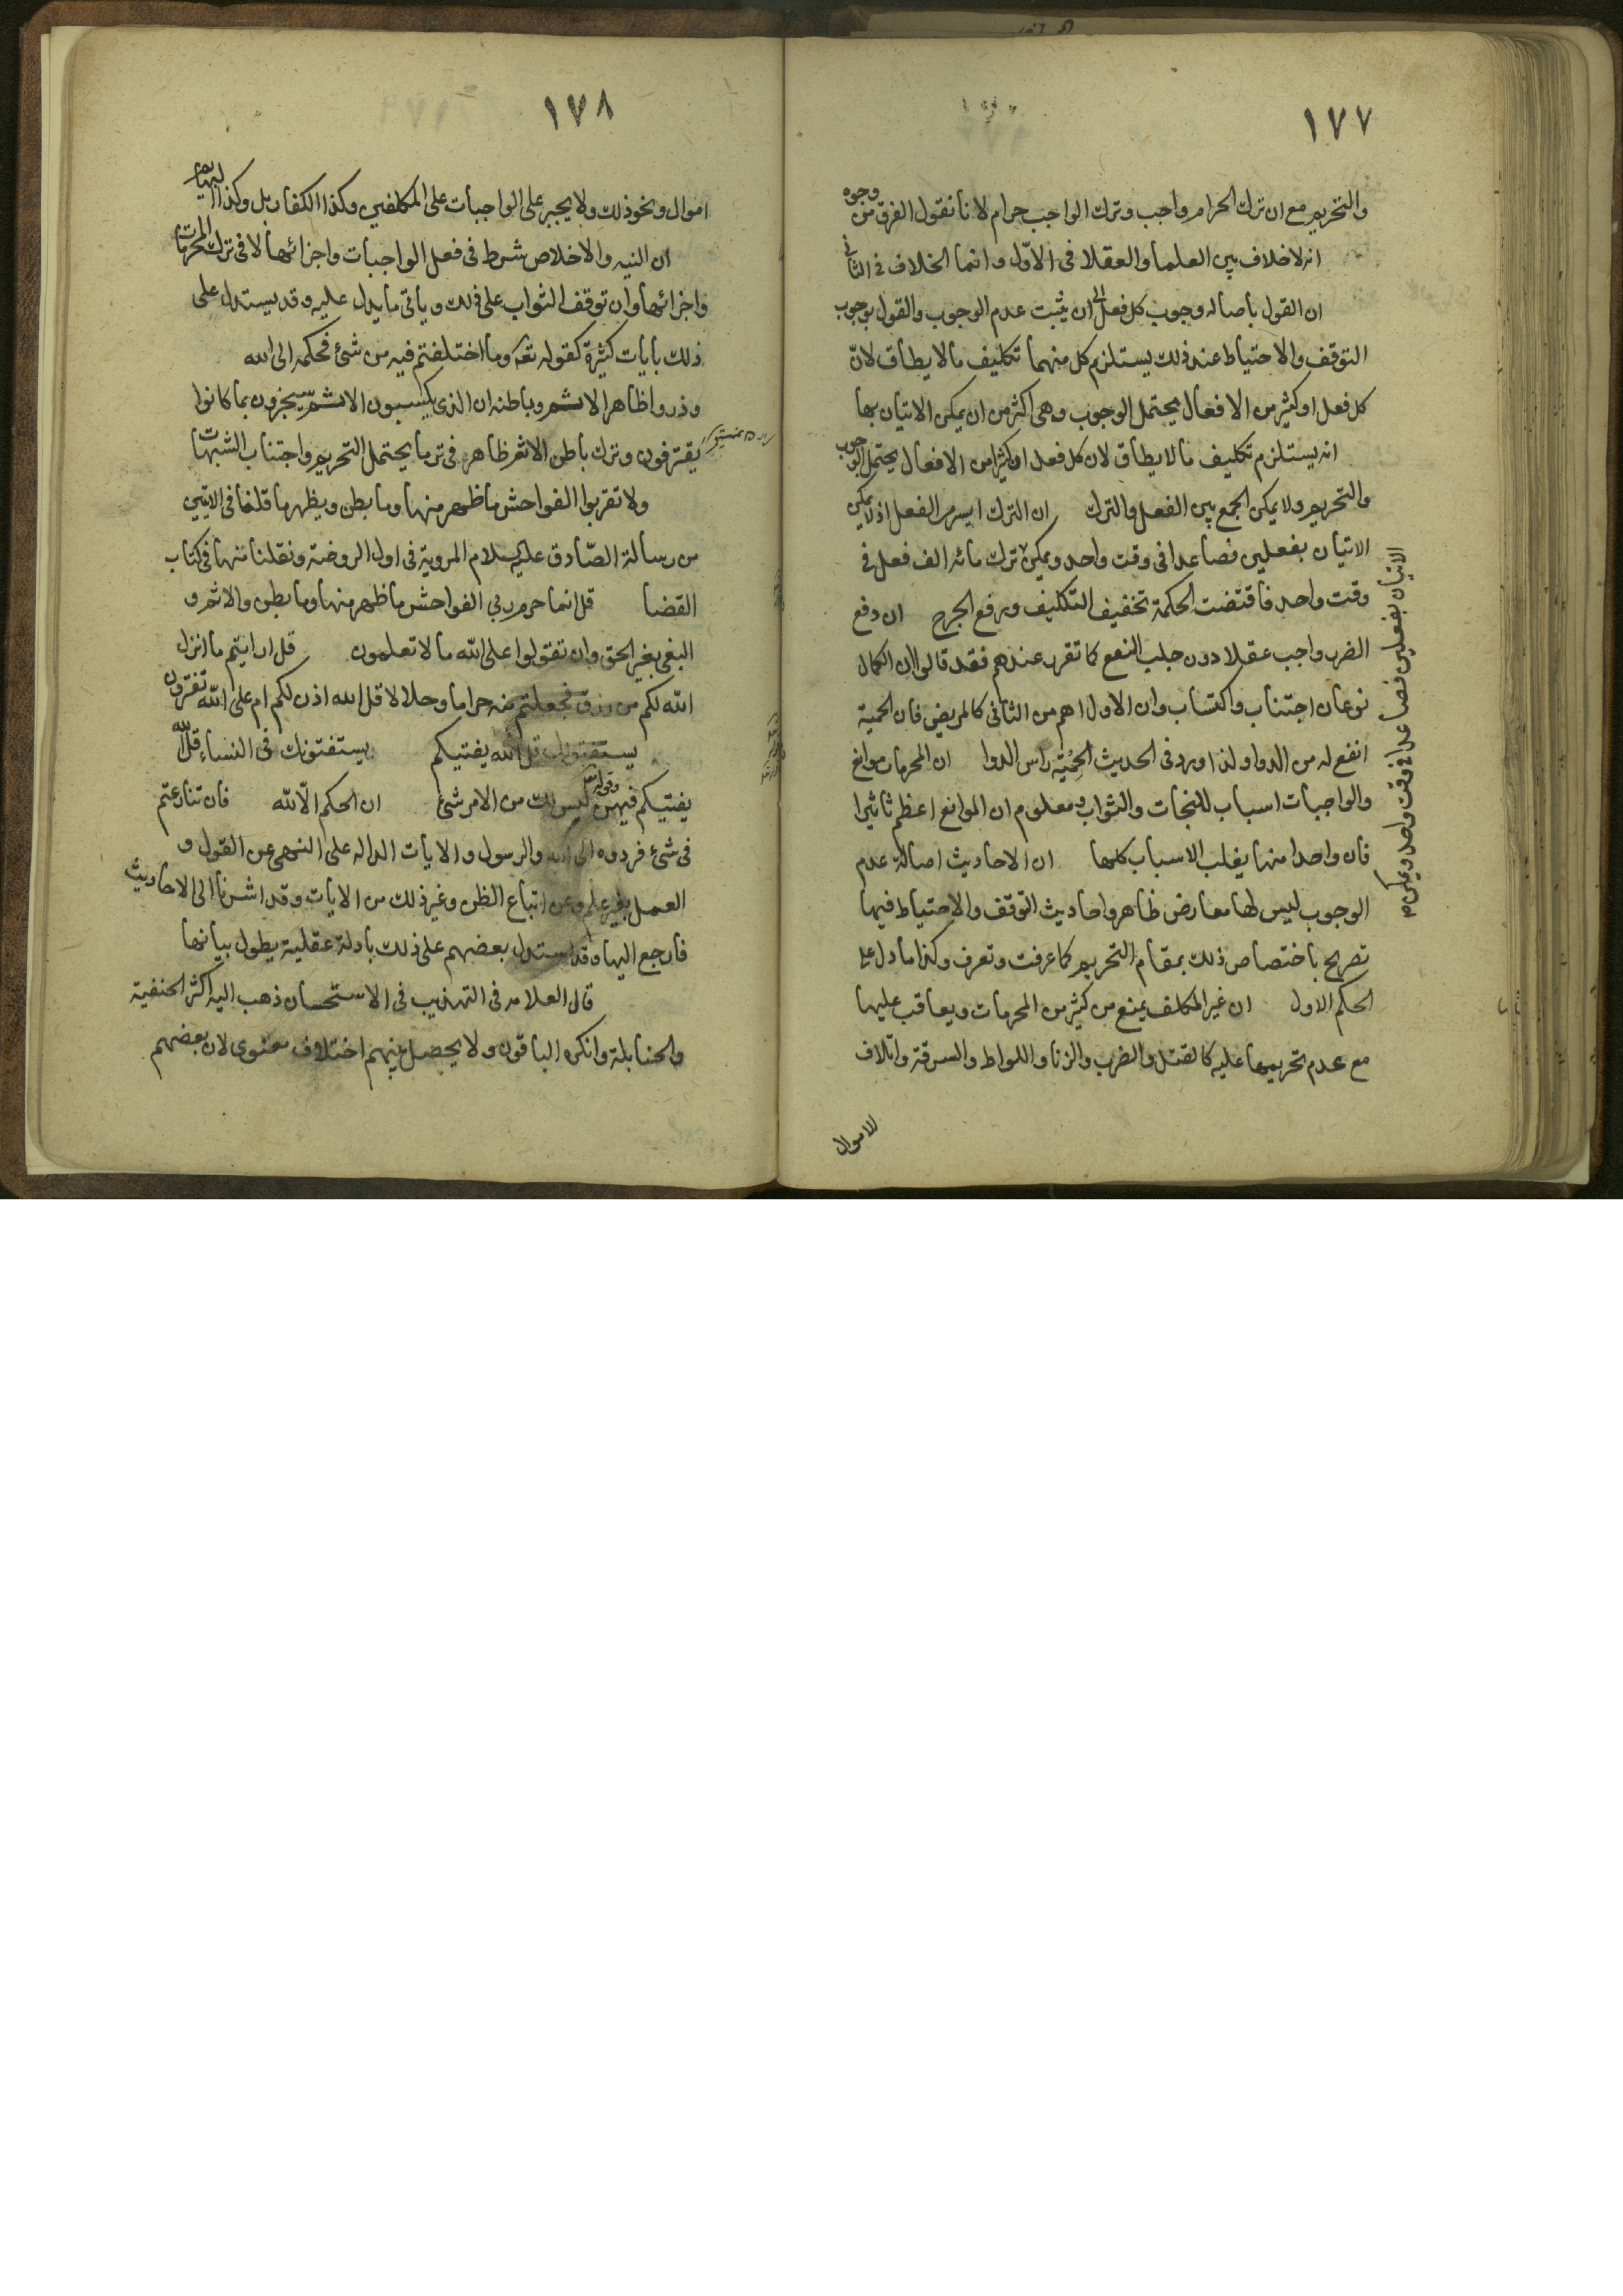 ١٧٧
والتحريم مع ان ترك الحرام واجب وترك الواجب حرام لانا نقول الفرق من وجوه
انه لاخلاف بين العلما والعقلا فى الاوّل وانما الخلاف فى الثانى
ان القول باصاله وجوب كل فعل الى ان يثبت عدم الوجوب والقول بوجوب
التوقف والاحتياط عند ذلك يستلزم كل منهما تكليف مالا يطاق لانّ
كل فعل او كثير من الافعال يحتمل الوجوب وهى اكثر من ان يمكن الاتيان بها
انه يستلزم تكليف مالا يطاق لان كل فعل او كثيرا من الافعال يحتمل الوجوب
والتحريم ولا يمكن الجمع بين الفعل والترك ان الترك ايسر من الفعل اذ لا يمكن
الاتيان بفعلين فصاعدا فى وقت واحد ويمكن ترك مائه الف فعل فى
وقت واحد فاقتضت الحكمة تخفيف التكليف ورفع الحرج ان دفع
الضرر واجب عقلا دون جلب النفع كما تقرر عندهم فقد قالوا ان الكمال
نوعان اجتناب واكتساب وان الاول اهم من الثانى كالمريض فان الحمية
انفع له من الدوا ولذا ورد فى الحديث الحِمْيَة راس الدوا ان المحرمات موانع
والواجبات اسباب للنجات والثواب ومعلوم ان الموانع اعظم تاثيرا
فان واحدا منها يغلب الاسباب كلها ان الاحاديث اصالة عدم
الوجوب ليس لها معارض ظاهر واحاديث التوقف والاحتياط فيها
تصريح باختصاص ذلك بمقام التحريم كما عرفت وتعرف وكذا ما دل على
الحكم الاول ان غير المكلف يمنع من كثير من المحرمات ويعاقب عليها
مع عدم تحريمها عليه كالقتل والضرب والزنا واللواط والسرقة واتلاف
الاموال
الاتيان بفعلين فصاعدا فى وقت واحد ويمكن
١٧٨
اموال ونحو ذلك ولا يجبر على الواجبات على المكلفين وكذا الكفار بل وكذا البهايم
ان النيه والاخلاص شرط فى فعل الواجبات واجزائها لا فى ترك المحرمات
واجزائها وان توقف الثواب على ذلك وياتى ما يدل عليه وقد يستدل على
ذلك بايات كثيرة كقوله تعه وما اختلفتم فيه من شئ فحكمه الى الله
وذروا ظاهر الاثم وباطنه ان الذى يكسبون الاثم سيجزون بما كانوا
يقترفون وترك باطن الاثم ظاهر فى ترما يحتمل التحريم واجتناب الشبهات
ولا تقربوا الفواحش ما ظهر منها وما بطن ويظهر ما قلنا فى الايتين
من رسالة الصّادق عليه السلام المروية فى اول الروضة ونقلنا منها فى كتاب
القضا قل انما حرم ربى الفواحش ما ظهر منها وما بطن والاثم و
البغى بغير الحق وان تقولوا على الله ما لا تعلمون قل ارايتم ما انزل
الله لكم من رزق فجعلتم منه حراما وحلالا قل الله اذن لكم ام على الله تفترون
يستفتونك قل الله يفتيكم يستفتونك فى النساء قل الله
يفتيكم فيهن وقوله ليس لك من الامر شئ ان الحكم الّا لله فان تنازعتم
فى شئ فردوه الى الله والرسول والايات الداله على النهى عن القول و
العمل بغير علم وعن اتباع الظن وغير ذلك من الايات وقد اشرنا الى الاحاديث
فارجع اليها وقد استدل بعضهم على ذلك بادلة عقلية يطول بيانها
قال العلامه فى التهذيب فى الاستحسان ذهب اليه اكثر الحنفية
والحنابلة وانكره الباقون ولا يحصل بينهم اختلاف معنوى لان بعضهم